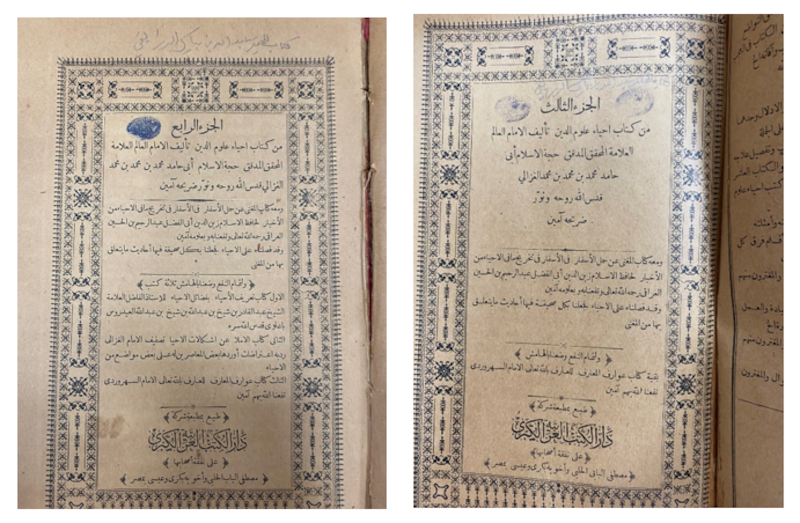 الجزء الرابع
من كتاب احياء علوم الدين تأليف الامام العالم العلامة
المحقق المدقق حجة الاسلام أبى حامد محمد بن محمد بن محمد
الغزالي قدس الله روحه ونور ضريحه آمين
ومعه كتاب المغنى عن حمل الأسفار فى الأسفار فى تخريج مافى الاحياء من
الأخبار لحافظ الاسلام زين الدين أبى الفضل عبد الرحيم بن الحسين
العراقى رحمه الله تعالى ونفعنا به وبعلومه آمين
وقد فصلناه على الاحياء فجعلنا بكل صحيفة فيها أحاديث ما يتعلق
بها من المغنى
وإتمام النفع وضعنا بالهامش ثلاثة كتب
الاول كتاب تعريف الأحياء بفضائل الاحياء للاستاذ الفاضل العلامة
الشيخ عبد القادر بن شيخ بن عبد الله بن شيخ بن عبد الله العيدروس
باعلوى قدس الله سره
الثانى كتاب الاملا عن اشكالات الاحيا تصنيف الامام الغزالى
رد به اعتراضات أوردها بعض المعاصرين له على بعض مواضع من
الاحياء
الثالث كتاب عوارف المعارف للعارف بالله تعالى الامام السهروردى
نفعنا الله بهم آمين
طبع بمطبعة شركة
دار الكتب العربية الكبرى
على نفقة أصحابها
مصطفى البابى الحلبى وأخويه بكرى وعيسى بمصر
الجزء الثالث
من كتاب احياء علوم الدين تأليف الامام العالم
العلامة المحقق المدقق حجة الاسلام أبى
حامد محمد بن محمد بن محمد الغزالي
قدس الله روحه ونور
ضريحه آمين
ومعه كتاب المغنى عن حمل الأسفار فى الأسفار فى تخريج مافى الاحياء من
الأخبار لحافظ الاسلام زين الدين أبى الفضل عبد الرحيم بن الحسين
العراقى رحمه الله تعالى ونفعنا به وبعلومه آمين
وقد فصلناه على الاحياء فجعلنا بكل صحيفة فيها أحاديث ما يتعلق
بها من المغنى
وإتمام النفع وضعنا بالهامش
بقية كتاب عوارف المعارف للعارف بالله تعالى الامام السهروردى
نفعنا الله بهم آمين
طبع بمطبعة شركة
دار الكتب العربية الكبرى
على نفقة أصحابها
مصطفى البابى الحلبى وأخويه بكرى وعيسى بمصر